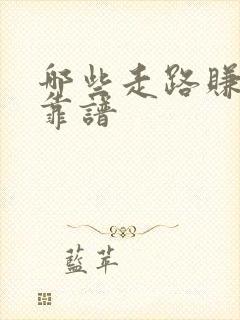 哪些走路賺
靠譜
藍苹